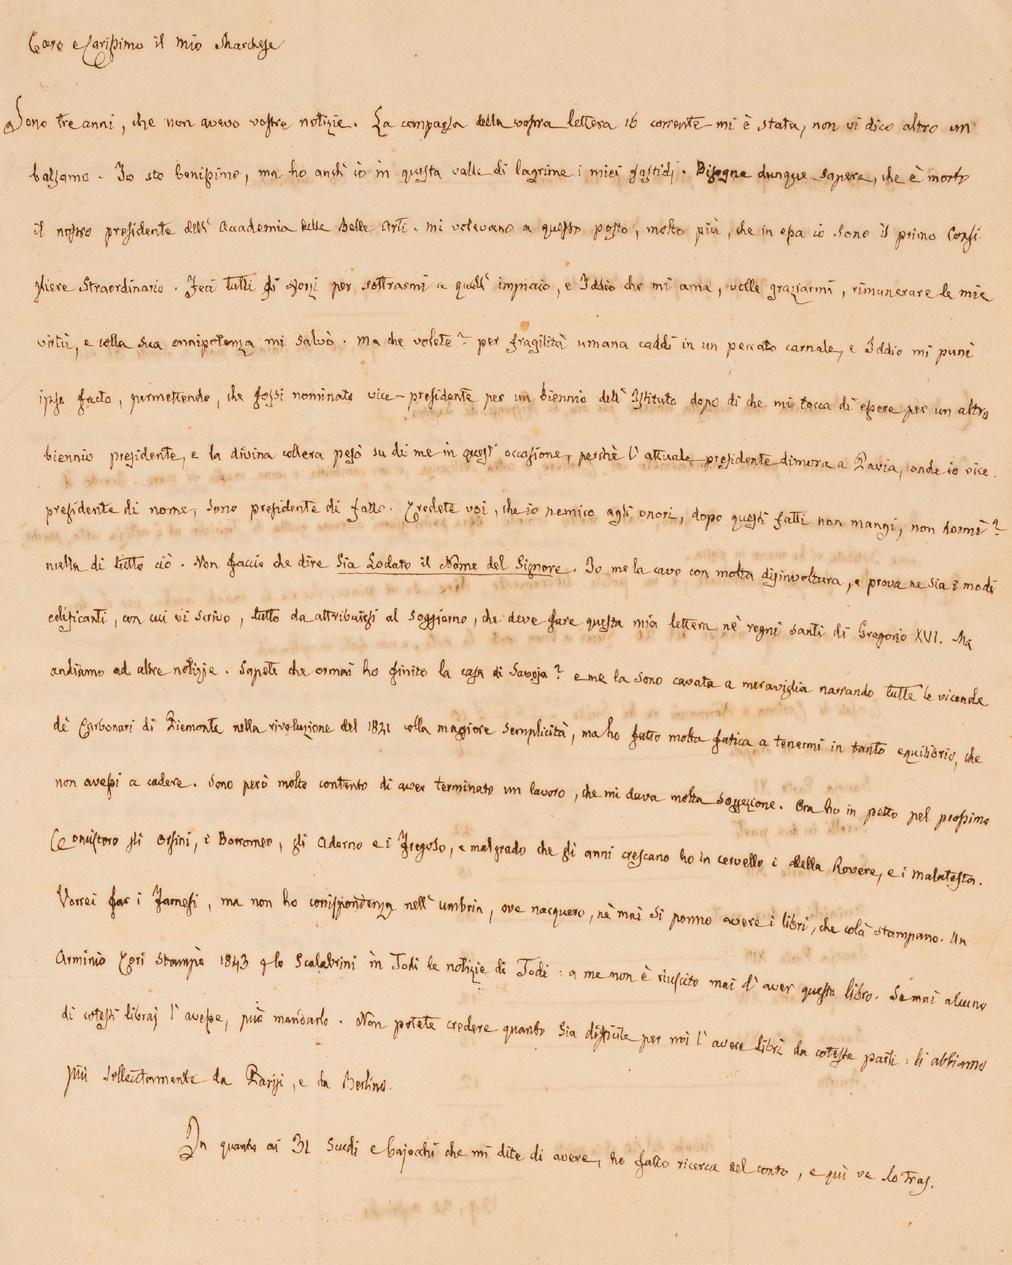 Caro e Carissimo il mio Marchese
Sono tre anni, che non avevo vostre notizie. La comparsa della vostra lettera 16 corrente mi è stata, non vi dico altro un
balsamo. Io sto benissimo, ma ho anch' io in questa valle di lagrime i miei fastidj. Bisogna dunque sapere, che è morto
il nostro presidente dell' Accademia delle Belle Arti. Mi volevano a questo posto, molto più, che in essa io sono il primo Consi
gliere Straordinario. Feci tutti gli sforzi per sottrarmi a quell' impiccio, e Iddio che mi ama, volle graziarmi, rimunerare le mie
virtù, e colla sua onnipotenza mi salvò. Ma che volete? per fragilità umana caddi in un peccato carnale, e Iddio mi punì
ipso facto, permettendo, che fossi nominato vice-presidente per un biennio dell' Istituto dopo di che mi tocca di essere per un altro
biennio presidente, e la divina collera pesò su di me in quest' occasione, perchè l' attuale presidente dimora a Pavia, onde io vice-
presidente di nome, sono presidente di fatto. Credete voi, che io nemico agli onori, dopo questi fatti non mangi, non dormi?
nulla di tutto ciò. Non faccio che dire Sia Lodato il Nome del Signore. Io me la cavo con molta disinvoltura, e prova ne sia i modi
edificanti, con cui vi scrivo, tutto da attribuirsi al soggiorno, che deve fare questa mia lettera ne' regni santi di Gregorio XVI. Ma
andiamo ad altre notizie. Sapete che ormai ho finito la casa di Savoja? e me la sono cavata a meraviglia narrando tutte le vicende
de' Carbonari di Piemonte nella rivoluzione del 1821 colla maggiore semplicità, ma ho fatto molta fatica a tenermi in tanto equilibrio, che
non avessi a cadere. Sono però molto contento di aver terminato un lavoro, che mi dava molta soggezione. Ora ho in petto pel prossimo
Concistoro gli Orsini, i Borromeo, gli Adorno e i Fregoso, e malgrado che gli anni crescano ho in cervello i della Rovere, e i Malatesta.
Vorrei far i Farnesi, ma non ho corrispondenza nell' Umbria, ove nacquero, nè mai si ponno avere i libri, che colà stampano. Un
Arminio Cori stampò 1843 per lo Scalabrini in Todi le notizie di Todi: a me non è riuscito mai d' aver questo libro. Se mai alcuno
di cotesti libraj l' avesse, può mandarlo. Non potete credere quanto sia difficile per noi l' avere libri da coteste parti: li abbiamo
più sollecitamente da Parigi, e da Berlino.
In quanto ai 31 scudi e bajocchi che mi dite di avere, ho fatto ricerca del conto, e quì ve lo tras.